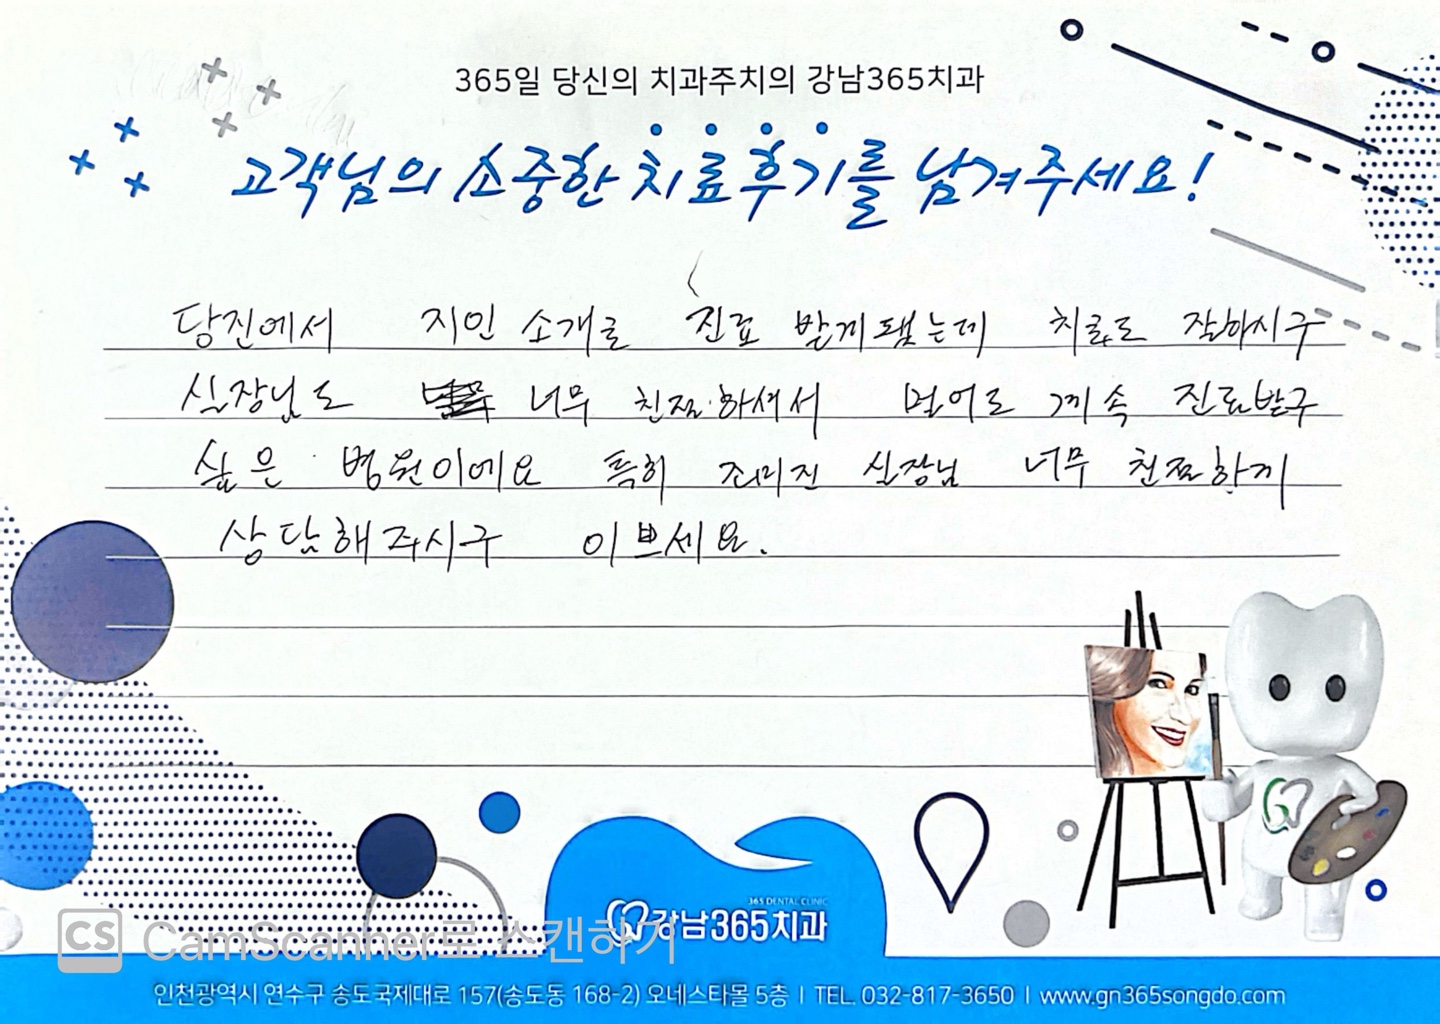 365일 당신의 치과주치의 강남365치과
고객님의 소중한 치료후기를 남겨주세요!
당진에서 지인 소개로 진료 받게됬는데 치료도 잘하시구
실장님도 너무 친절하셔서 멀어도 계속 진료받구
싶은 병원이에요 특히 조미진 실장님 너무 친절하게
상담해주시구 이쁘세요.
365 DENTAL CLINIC
강남365치과
CS CamScanner로 스캔하기
인천광역시 연수구 송도국제대로 157(송도동 168-2) 오네스타몰 5층 | TEL. 032-817-3650 | www.gn365songdo.com